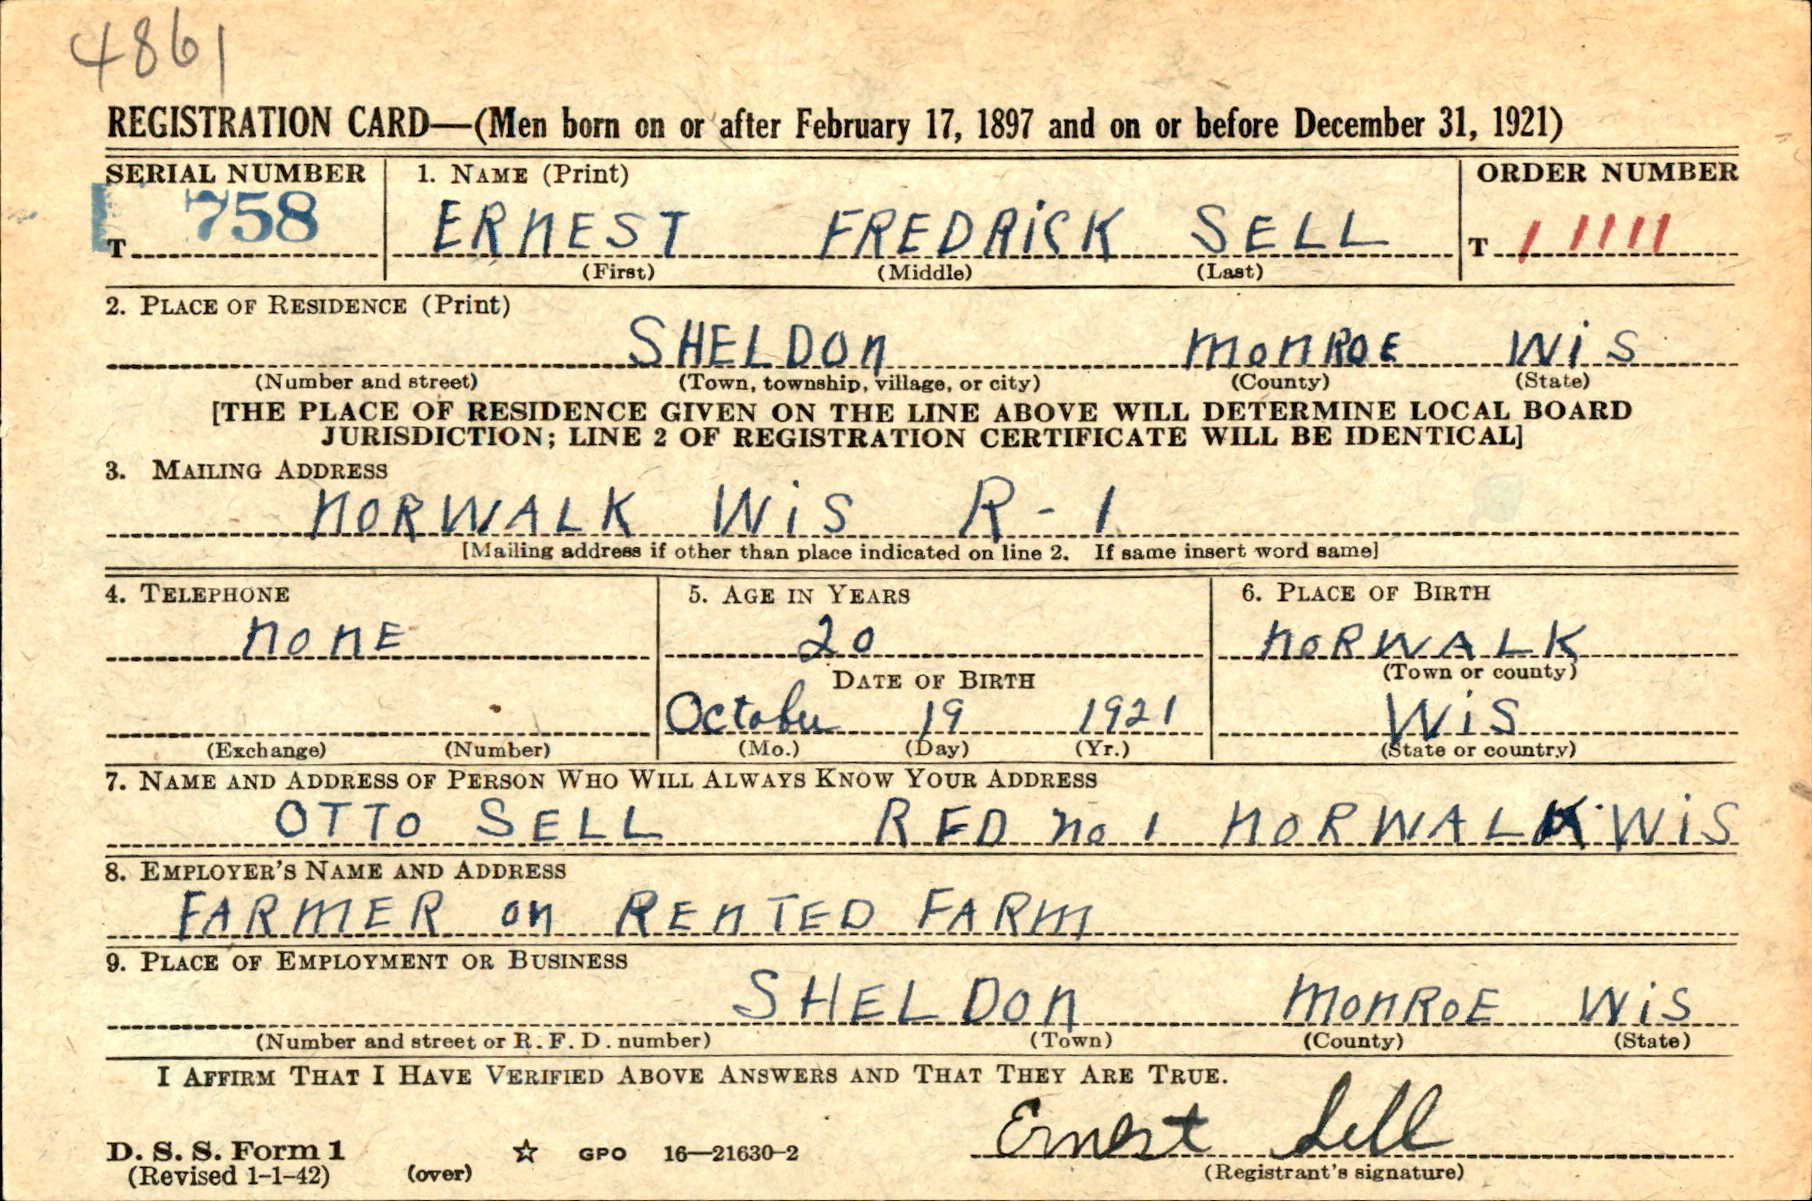 4861
REGISTRATION CARD—(Men born on or after February 17, 1897 and on or before December 31, 1921)
SERIAL NUMBER 1. NAME (Print) ORDER NUMBER
T 758 ERNEST FREDRICK SELL T 11111
(First) (Middle) (Last)
2. PLACE OF RESIDENCE (Print)
SHELDON MONROE WIS
(Number and street) (Town, township, village, or city) (County) (State)
[THE PLACE OF RESIDENCE GIVEN ON THE LINE ABOVE WILL DETERMINE LOCAL BOARD
JURISDICTION; LINE 2 OF REGISTRATION CERTIFICATE WILL BE IDENTICAL]
3. MAILING ADDRESS
NORWALK WIS R-1
[Mailing address if other than place indicated on line 2. If same insert word same]
4. TELEPHONE 5. AGE IN YEARS 6. PLACE OF BIRTH
NONE 20 NORWALK
DATE OF BIRTH (Town or county)
October 19 1921 WIS
(Exchange) (Number) (Mo.) (Day) (Yr.) (State or country)
7. NAME AND ADDRESS OF PERSON WHO WILL ALWAYS KNOW YOUR ADDRESS
OTTO SELL RFD no 1 NORWALK WIS
8. EMPLOYER'S NAME AND ADDRESS
FARMER ON RENTED FARM
9. PLACE OF EMPLOYMENT OR BUSINESS
SHELDON MONROE WIS
(Number and street or R. F. D. number) (Town) (County) (State)
I AFFIRM THAT I HAVE VERIFIED ABOVE ANSWERS AND THAT THEY ARE TRUE.
Ernest Sell
D. S. S. Form 1 ☆ GPO 16—21630-2
(Revised 1-1-42) (over) (Registrant's signature)